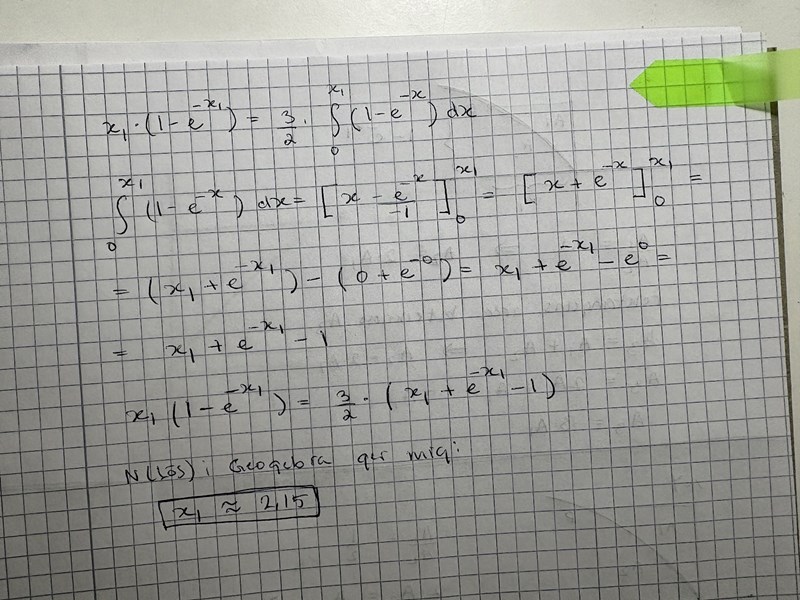 x₁·(1-e^(-x₁)) = 3/2 · ∫₀^(x₁) (1-e^(-x)) dx
∫₀^(x₁) (1-e^(-x)) dx = [x - e^(-x)/-1]₀^(x₁) = [x + e^(-x)]₀^(x₁) =
= (x₁ + e^(-x₁)) - (0 + e^(-0)) = x₁ + e^(-x₁) - e^0 =
= x₁ + e^(-x₁) - 1
x₁(1-e^(-x₁)) = 3/2 · (x₁ + e^(-x₁) - 1)
N(Lös) i Geogebra ger mig:
x₁ ≈ 2,15